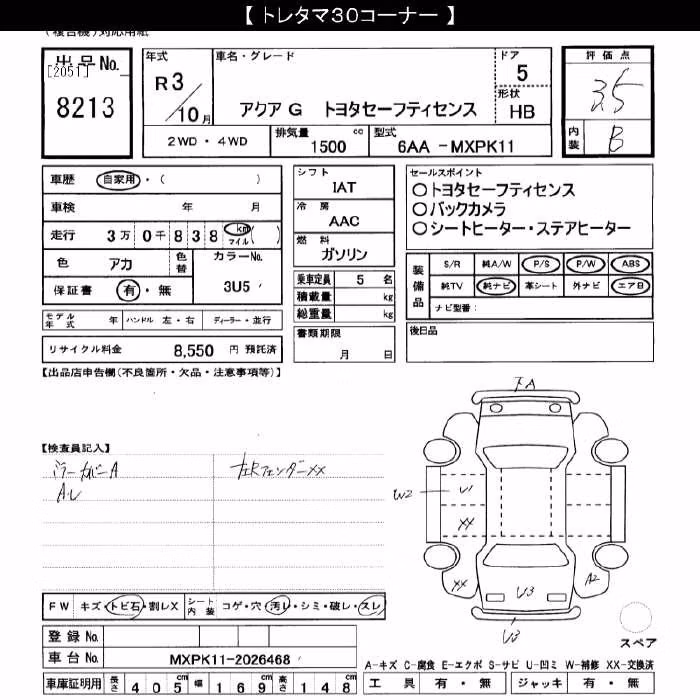 【 トレタマ30コーナー 】
（複合機）対応用紙
出品No.
[2051]
8213
年式
R 3
10 月
車名・グレード
アクア G トヨタセーフティセンス
ドア
5
形状
HB
2WD・4WD
排気量
1500 cc
型式
6AA -MXPK11
評価点
3.5
内装
B
車歴 自家用・( )
車検 年 月
走行 3万 0千 8 3 8 km マイル ( )
色 アカ
色替
カラーNo.
3U5
保証書 有・無
シフト
IAT
冷房
AAC
燃料
ガソリン
乗車定員 5 名
積載量 kg
総重量 kg
書類期限
月 日
セールスポイント
○トヨタセーフティセンス
○バックカメラ
○シートヒーター・ステアヒーター
装備品
S/R 純A/W P/S P/W ABS
純TV 純ナビ 革シート 外ナビ エアB
ナビ型番：
後日品
モデル年式 年 ハンドル 左・右 ディーラー・並行
リサイクル料金 8,550 円 預託済
【出品店申告欄(不良箇所・欠品・注意事項等)】
【検査員記入】
ミラーカバーA
A・U
左Rフェンダーxx
FW キズ・トビ石・割レX
シート内装 コゲ・穴・汚レ・シミ・破レ・スレ
登録 No.
車台 No. MXPK11-2026468
車庫証明用 長さ 405 幅 169 高さ 148
下A
W2
U1
XX
XX
A2
U3
U3
スペア
A-キズ C-腐食 E-エクボ S-サビ U-凹ミ W-補修 XX-交換済
工具 有・無 ジャッキ 有・無